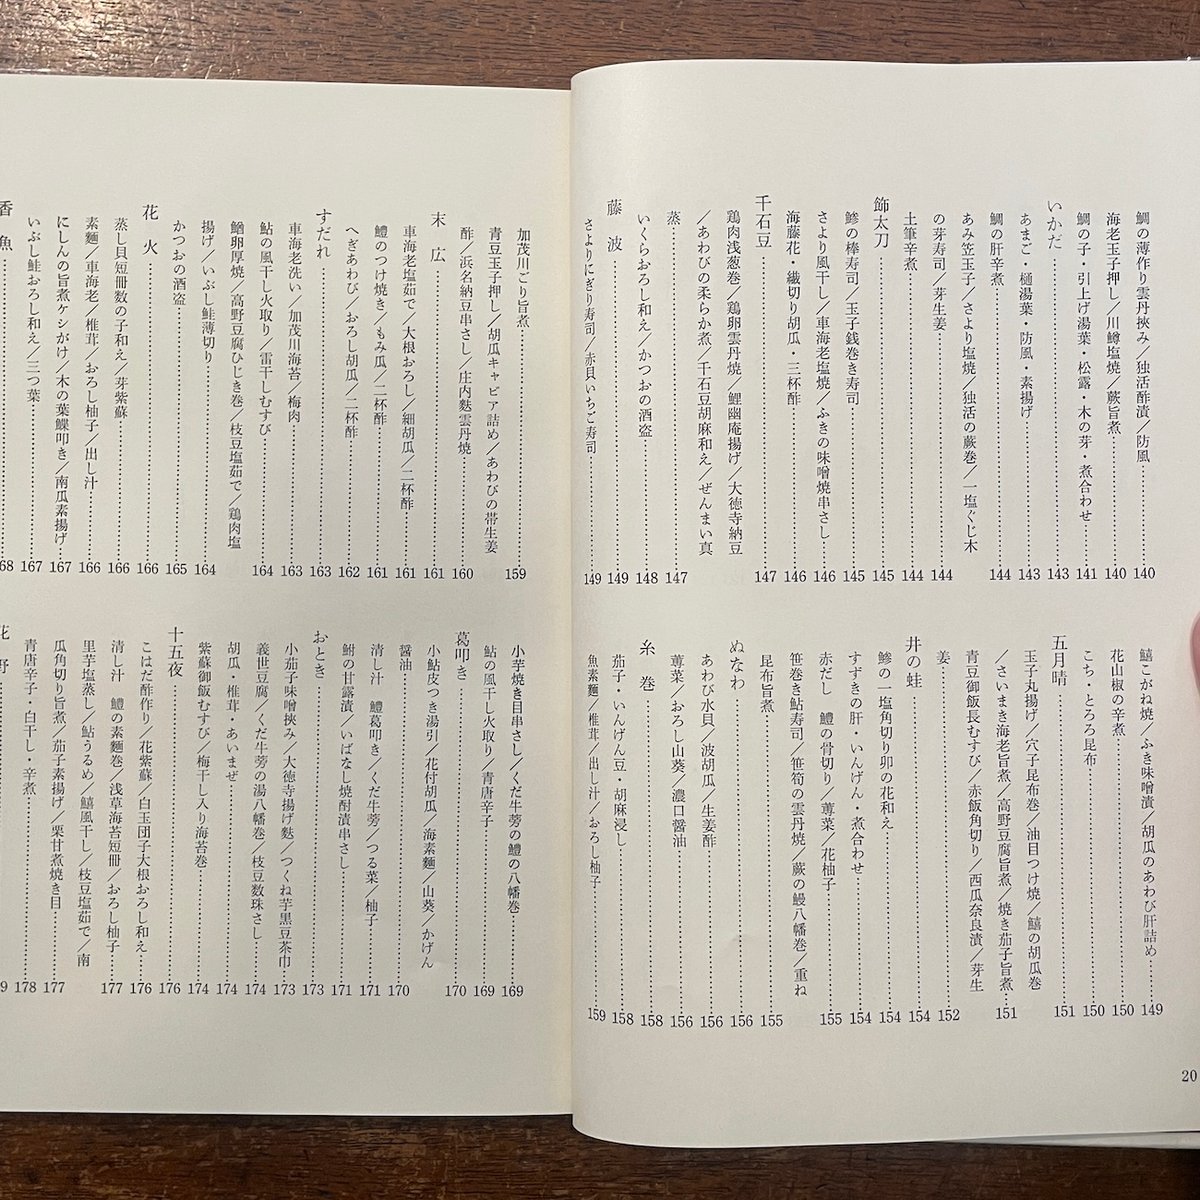 鯛の薄作り雲丹挾み／独活酢漬／防風……140
海老玉子押し／川鱒塩焼／蕨旨煮……140
鯛の子・引上げ湯葉・松露・木の芽・煮合わせ……141
いかだ……143
あまご・樋湯葉・防風・素揚げ……143
鯛の肝辛煮……144
あみ笠玉子／さより塩焼／独活の蕨巻／一塩ぐじ木
の芽寿司／芽生姜……144
土筆辛煮……144
飾太刀……145
鯵の棒寿司／玉子銭巻き寿司……145
さより風干し／車海老塩焼／ふきの味噌焼串さし……146
海藤花・繊切り胡瓜・三杯酢……146
千石豆……147
鶏肉浅葱巻／鶏卵雲丹焼／鯉幽庵揚げ／大徳寺納豆
／あわびの柔らか煮／千石豆胡麻和え／ぜんまい真
蒸……147
いくらおろし和え／かつおの酒盗……148
藤波……149
さよりにぎり寿司／赤貝いちご寿司……149
鱚こがね焼／ふき味噌漬／胡瓜のあわび肝詰め……149
花山椒の辛煮……150
こち・とろろ昆布……150
五月晴……151
玉子丸揚げ／穴子昆布巻／油目つけ焼／鱚の胡瓜巻
／さいまき海老旨煮／高野豆腐旨煮／焼き茄子旨煮……151
青豆御飯長むすび／赤飯角切り／西瓜奈良漬／芽生
姜……152
井の蛙……154
鯵の一塩角切り卯の花和え……154
すずきの肝・いんげん・煮合わせ……154
赤だし　鱧の骨切り／蓴菜／花柚子……155
笹巻き鮎寿司／笹筍の雲丹焼／蕨の鰻八幡巻／重ね
昆布旨煮……155
ぬなわ……156
あわび水貝／波胡瓜／生姜酢……156
蓴菜／おろし山葵／濃口醤油……156
糸巻……158
茄子・いんげん豆・胡麻浸し……158
魚素麺／椎茸／出し汁／おろし柚子……159
20
加茂川ごり旨煮……159
青豆玉子押し／胡瓜キャビア詰め／あわびの帯生姜
酢／浜名納豆串さし／庄内麩雲丹焼……160
末広……161
車海老塩茹で／大根おろし／細胡瓜／二杯酢……161
鱧のつけ焼き／もみ瓜／二杯酢……161
へぎあわび／おろし胡瓜／二杯酢……162
すだれ……163
車海老洗い／加茂川海苔／梅肉……163
鮎の風干し火取り／雷干しむすび……164
鰌卵厚焼／高野豆腐ひじき巻／枝豆塩茹で／鶏肉塩
揚げ／いぶし鮭薄切り……164
かつおの酒盗……165
花火……166
蒸し貝短冊数の子和え／芽紫蘇……166
素麺／車海老／椎茸／おろし柚子／出し汁……166
にしんの旨煮ケシがけ／木の葉鰈叩き／南瓜素揚げ……167
いぶし鮭おろし和え／三つ葉……167
香魚……168
小芋焼き目串さし／くだ牛蒡の鱧の八幡巻……169
鮎の風干し火取り／青唐辛子……169
葛叩き……170
小鮎皮つき湯引／花付胡瓜／海素麺／山葵／かげん
醤油……170
清し汁　鱧葛叩き／くだ牛蒡／つる菜／柚子……171
鮒の甘露漬／いばなし焼酎漬串さし……171
おとき……173
小茄子味噌挾み／大徳寺揚げ麩／つくね芋黒豆茶巾……173
義世豆腐／くだ牛蒡の湯八幡巻／枝豆数珠さし……174
胡瓜・椎茸・あいまぜ……174
紫蘇御飯むすび／梅干し入り海苔巻……174
十五夜……176
こはだ酢作り／花紫蘇／白玉団子大根おろし和え……176
清し汁　鱧の素麺巻／浅草海苔短冊／おろし柚子……177
里芋塩蒸し／鮎うるめ／鱚風干し／枝豆塩茹で／南
瓜角切り旨煮／茄子素揚げ／栗甘煮焼き目……177
青唐辛子・白干し・辛煮……178
花野……